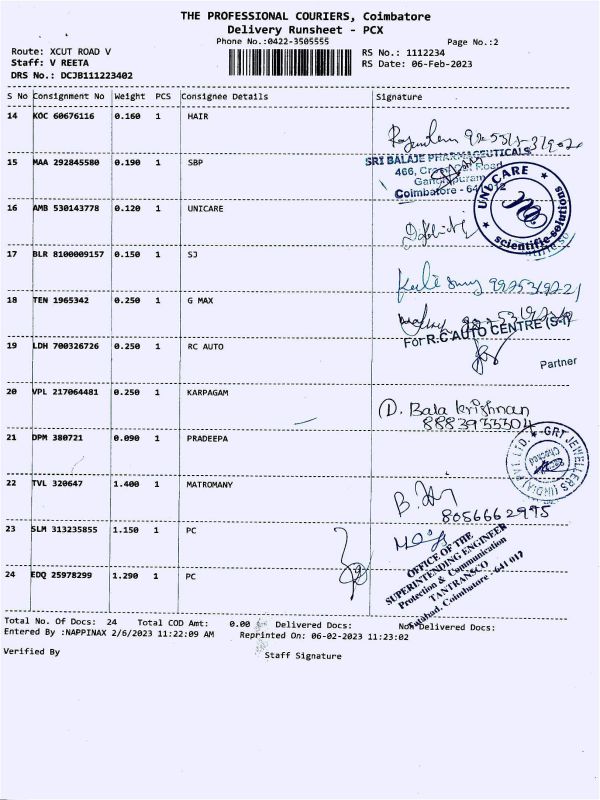 THE PROFESSIONAL COURIERS, Coimbatore
Delivery Runsheet - PCX
Phone No.:0422-3505555
Page No.:2
Route: XCUT ROAD V
RS No.: 1112234
Staff: V REETA
RS Date: 06-Feb-2023
DRS No.: DCJB111223402
S No Consignment No Weight PCS Consignee Details Signature
14 KOC 60676116 0.160 1 HAIR
15 MAA 292845580 0.190 1 SBP
SRI BALAJE PHARMACEUTICALS
466, Cross Cut Road
Gandhipuram
Coimbatore - 641 012
UNICARE
scientific solutions
16 AMB 530143778 0.120 1 UNICARE
17 BLR 8100009157 0.150 1 SJ
18 TEN 1965342 0.250 1 G MAX
For R.C AUTO CENTRE (S-1)
19 LDH 700326726 0.250 1 RC AUTO
Partner
20 VPL 217064481 0.250 1 KARPAGAM
D. Bala krishnan
21 DPM 380721 0.090 1 PRADEEPA
GRT JEWELLERS (INDIA) PVT. LTD.
22 TVL 320647 1.400 1 MATROMANY
8056662995
23 SLM 313235855 1.150 1 PC
OFFICE OF THE
SUPERINTENDING ENGINEER
Protection & Communication
TANTRANSCO
Coimbatore - 641 012
24 EDQ 25978299 1.290 1 PC
Total No. Of Docs: 24 Total COD Amt: 0.00 Delivered Docs: Non Delivered Docs:
Entered By :NAPPINAX 2/6/2023 11:22:09 AM Reprinted On: 06-02-2023 11:23:02
Verified By
Staff Signature